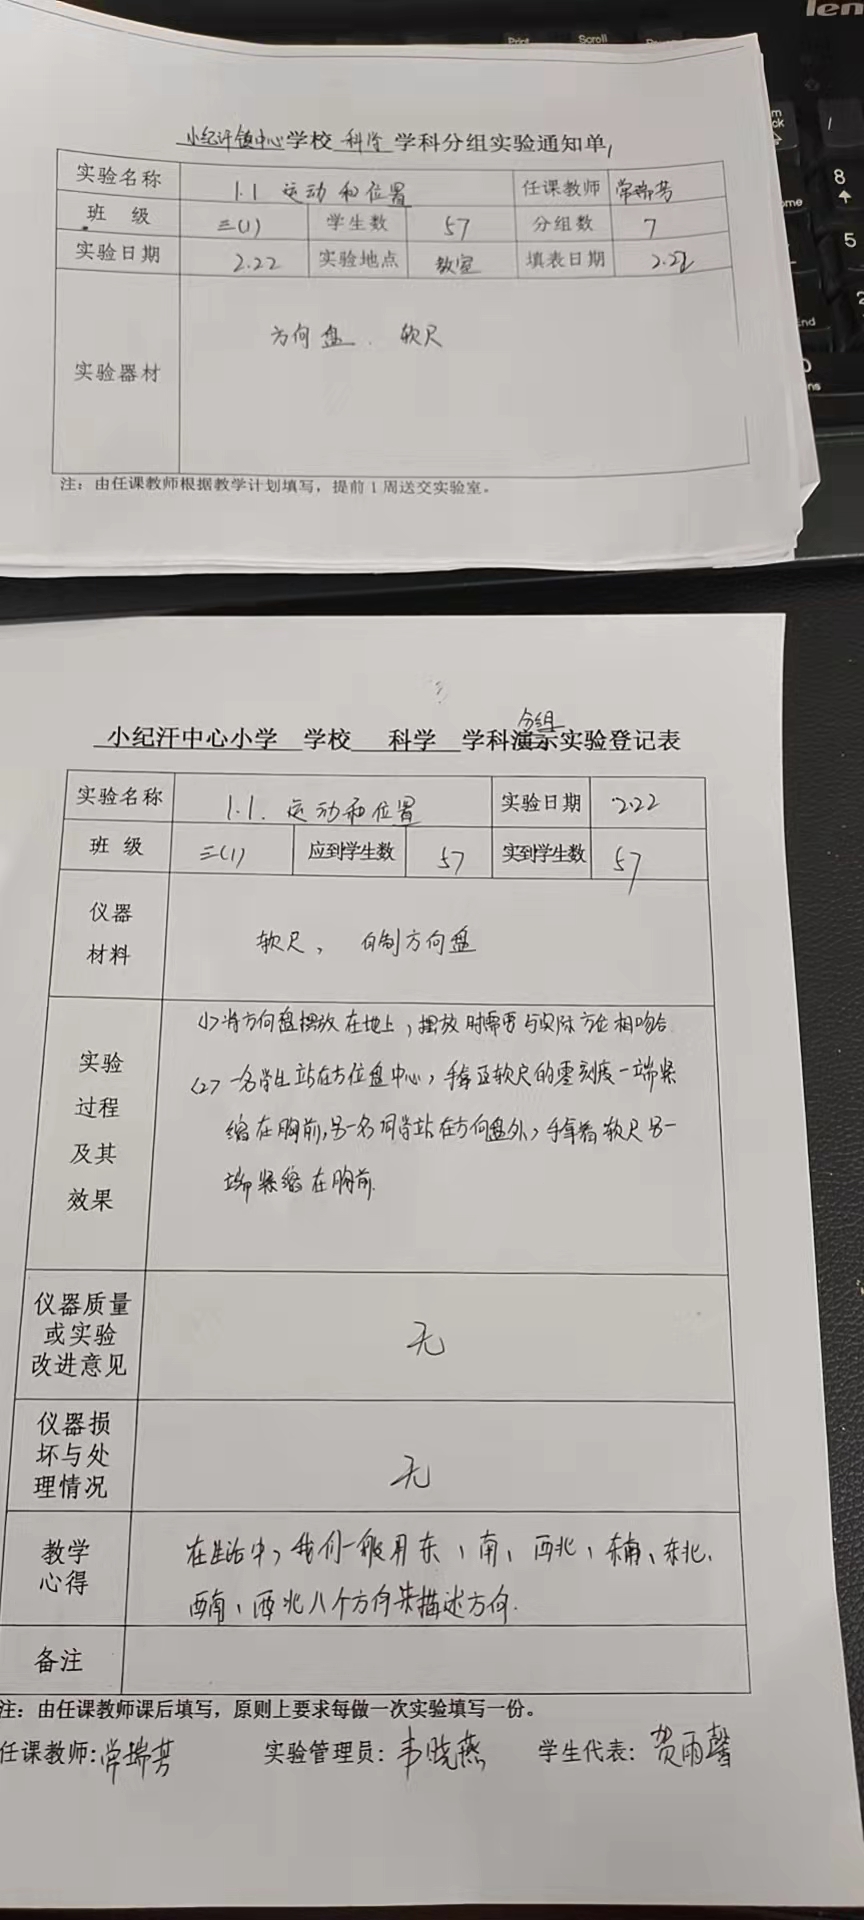 len
Scroll
小纪汗镇中心学校 科学 学科分组实验通知单
实验名称 1.1 运动和位置 任课教师 常瑞芳
班 级 三(1) 学生数 57 分组数 7
实验日期 2.22 实验地点 教室 填表日期 2.22
实验器材 方向盘、软尺
注：由任课教师根据教学计划填写，提前1周送交实验室。
分组
小纪汗中心小学 学校 科学 学科演示实验登记表
实验名称 1.1.运动和位置 实验日期 2.22
班 级 三(1) 应到学生数 57 实到学生数 57
仪器
材料
软尺， 自制方向盘
实验
过程
及其
效果
(1)将方向盘摆放在地上，摆放时需要与实际方位相吻合
(2)一名学生站在方位盘中心，手拿着软尺的零刻度一端紧
缩在胸前,另一名同学站在方向盘外，手拿着软尺另一
端紧缩在胸前.
仪器质量
或实验
改进意见
无
仪器损
坏与处
理情况
无
教学
心得
在生活中，我们一般用东、南、西北、东南、东北、
西南、西北八个方向来描述方向.
备注
注：由任课教师课后填写，原则上要求每做一次实验填写一份。
任课教师:常瑞芳 实验管理员：韦晓燕 学生代表：贺雨馨